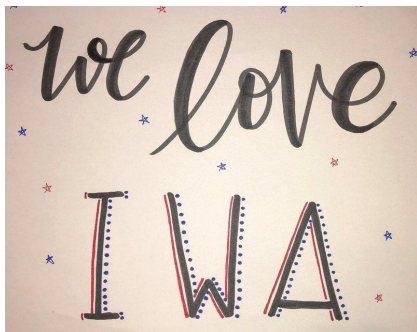 we love
I W A